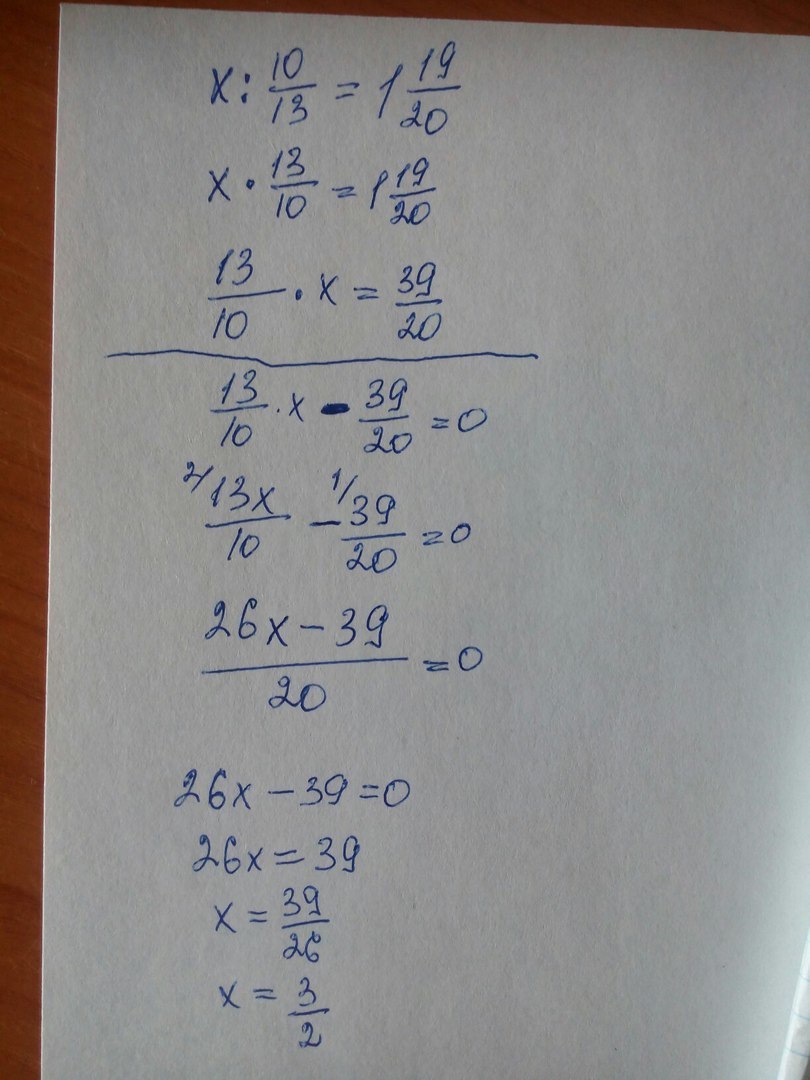 x : 10/13 = 1 19/20
x · 13/10 = 1 19/20
13/10 · x = 39/20
13/10 · x - 39/20 = 0
2/ 13x/10 - 1/ 39/20 = 0
26x - 39/20 = 0
26x - 39 = 0
26x = 39
x = 39/26
x = 3/2